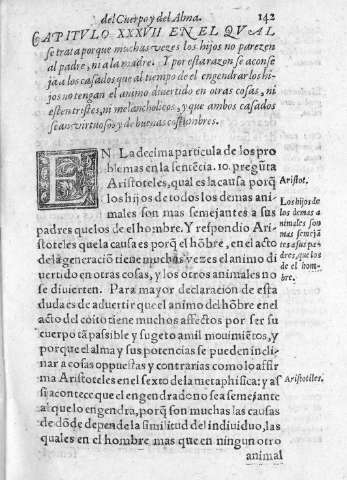 del Cuerpo y del Alma. 142
CAPITVLO XXXVII EN EL QVAL
se trata porque muchas vezes los hijos no parezen
al padre, ni a la madre. I por esta razon se aconse
ja a los casados que al tiempo de el engendrar los hi-
jos no tengan el animo diuertido en otras cosas, ni
esten tristes, ni melancholicos, y que ambos casados
sean virtuosos y de buenas costumbres.
EN. La decima particula de los pro
blemas en la sentēcia. 10. pregūta
Aristoteles, qual es la causa porq̃
los hijos de todos los demas ani-
males son mas semejantes a sus
padres quelos de el hombre. Y respondio Ari-
stoteles que la causa es porq̃ el hōbre, en el acto
de la generaciō tiene muchas vezes el animo di
uertido en otras cosas, y los otros animales no
se diuierten. Para mayor declaracion de esta
duda es de aduertir que el animo del hōbre en el
acto del coito tiene muchos affectos por ser su
cuerpo tā passible y sugeto amil mouimiētos, y
porque el alma y sus potencias se pueden incli-
nar a cosas oppuestas y contrarias como lo affir
ma Aristoteles en el sexto de la metaphisica: y as
si acontece que el engendrado no sea semejante
al que lo engendra, porq̃ son muchas las causas
de dōde depende la similitud del indiuiduo, las
quales en el hombre mas que en ningun otro
animal
Aristot.
Los hijos de
los demas a
nimales son
mas semejā
tes a sus pa-
dres, que los
de el hom-
bre.
Aristotiles.